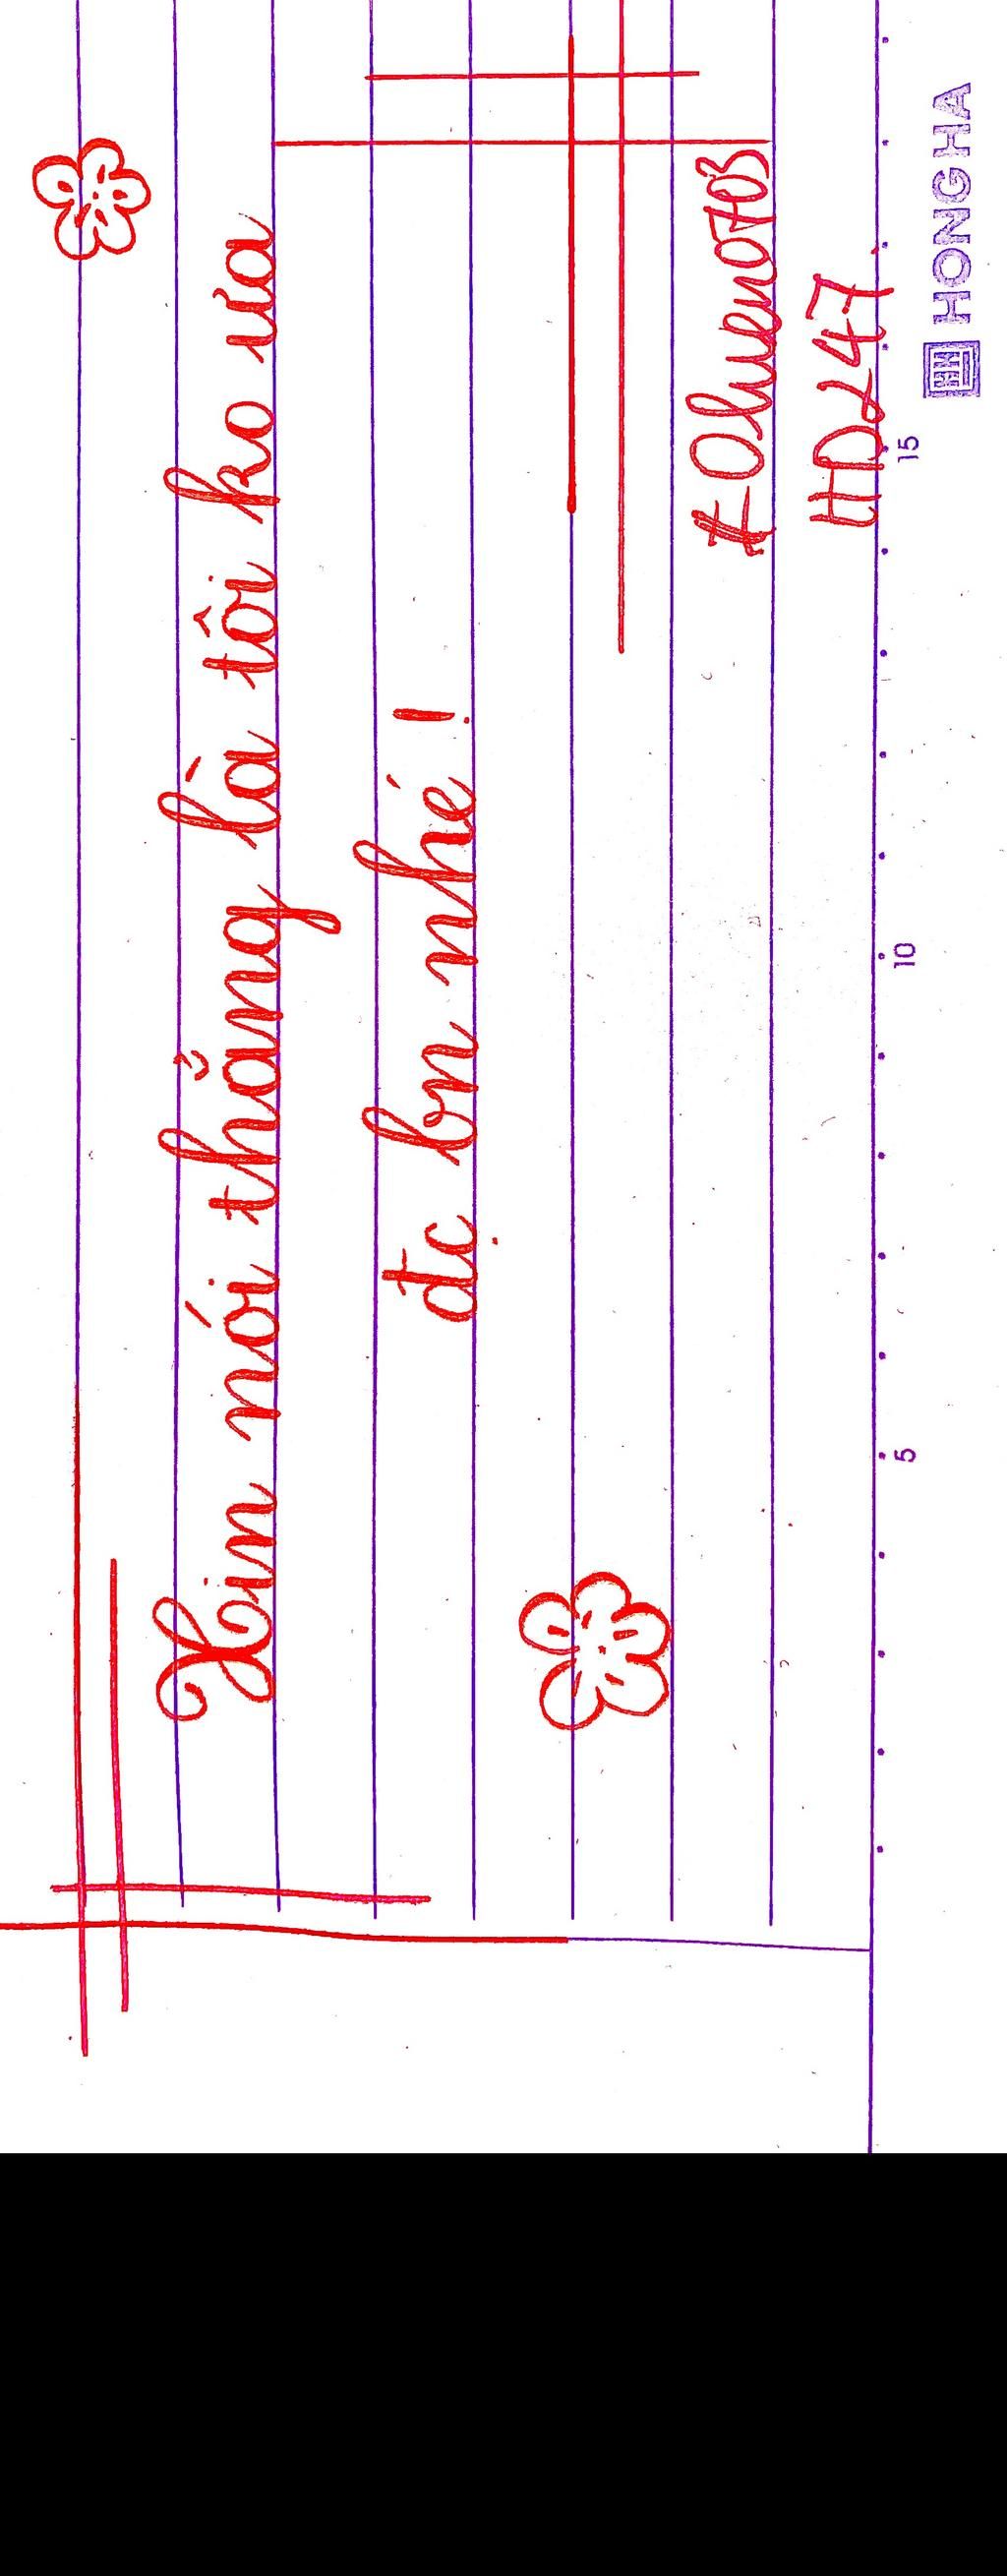 Xin nói thẳng là tôi ko ưa
đc bn nhé !
HD247
HONG HA
5
10
15